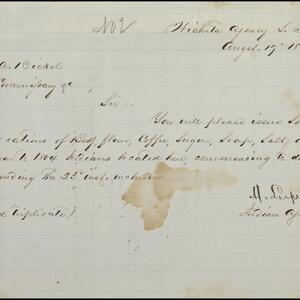 No 2
Wichita Agency
Augst 19th 18
A. Bickel
Commissary &c
Sir:
You will please issue
rations of Beef, flour, Coffee, Sugar, Soap, Salt,
to 1804 Indians located here, commencing to
ending the 25th inst, inclusive
Indian
Triplicate)